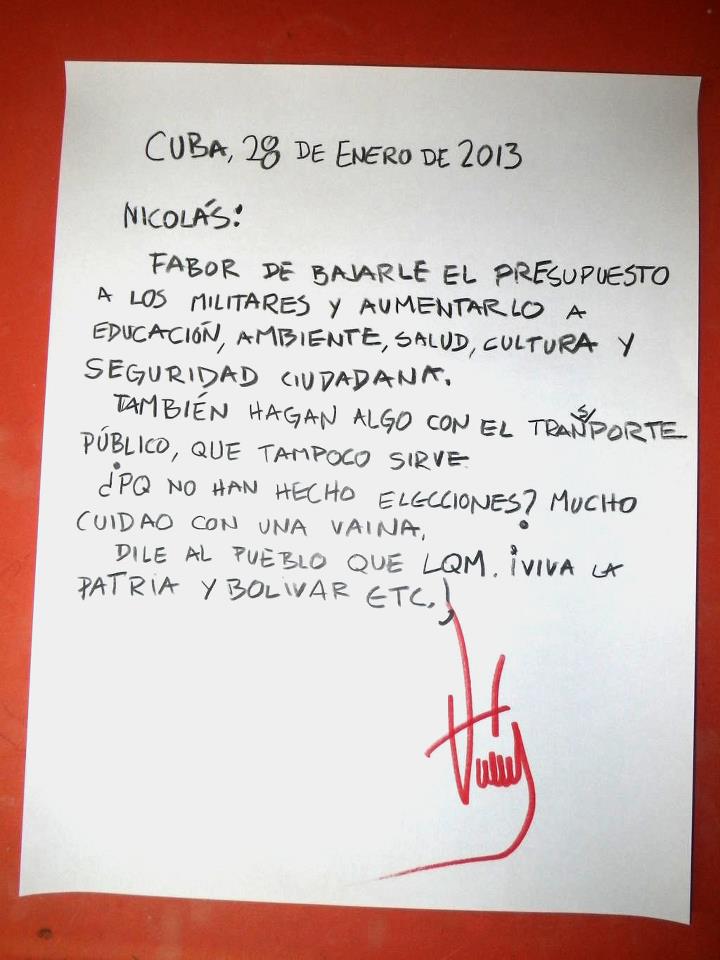 CUBA, 28 DE ENERO DE 2013
NICOLÁS:
FABOR DE BAJARLE EL PRESUPUESTO
A LOS MILITARES Y AUMENTARLO A
EDUCACIÓN, AMBIENTE, SALUD, CULTURA Y
SEGURIDAD CIUDADANA.
TAMBIÉN HAGAN ALGO CON EL TRANSPORTE
PÚBLICO, QUE TAMPOCO SIRVE
¿PQ NO HAN HECHO ELECCIONES? MUCHO
CUIDAO CON UNA VAINA.
DILE AL PUEBLO QUE LQM. ¡VIVA LA
PATRIA Y BOLIVAR ETC.!